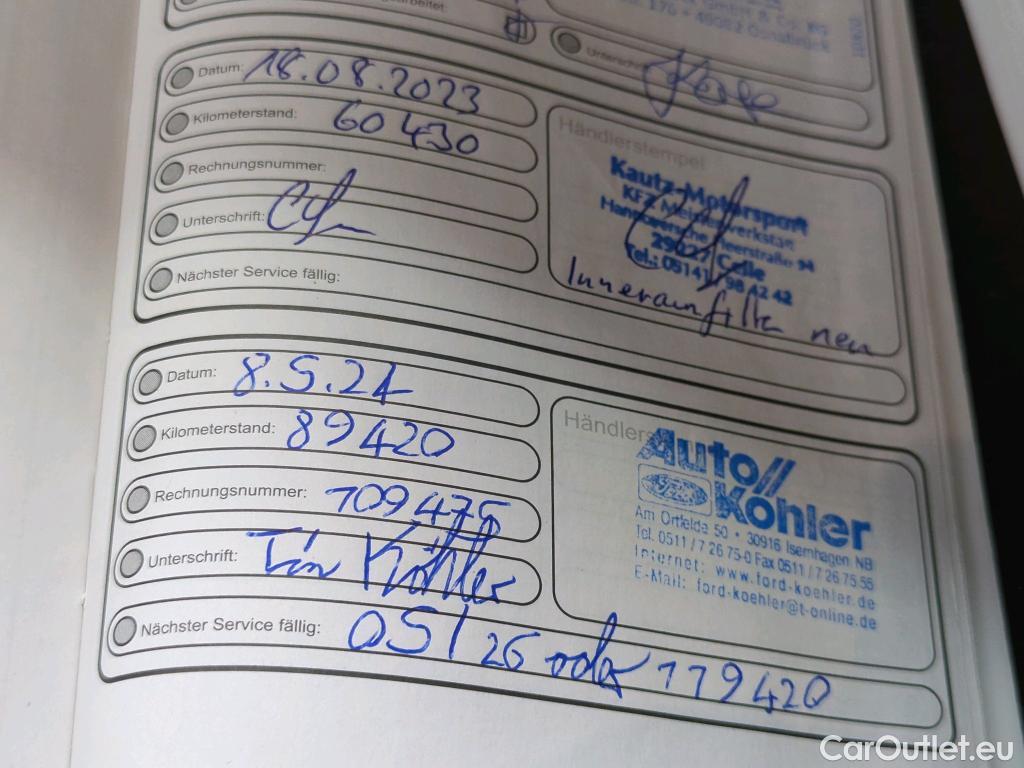 Datum: 18.08.2023
Kilometerstand: 60430
Rechnungsnummer:
Unterschrift:
Nächster Service fällig:
Händlerstempel
Kautz-Motorsport
KFZ Meisterwerkstatt
Hannoversche Heerstraße 94
29227 Celle
Tel.: 05141 / 98 42 42
Innenraumfilter neu
Datum: 8.5.24
Kilometerstand: 89420
Rechnungsnummer: 109475
Unterschrift: Tim Köhler
Nächster Service fällig: 05/26 oder 119420
Auto//
Köhler
Am Ortfelde 50 • 30916 Isernhagen NB
Tel. 0511 / 7 26 75-0 Fax 0511 / 7 26 75 55
Internet: www.ford-koehler.de
E-Mail: ford-koehler@t-online.de
CarOutlet.eu